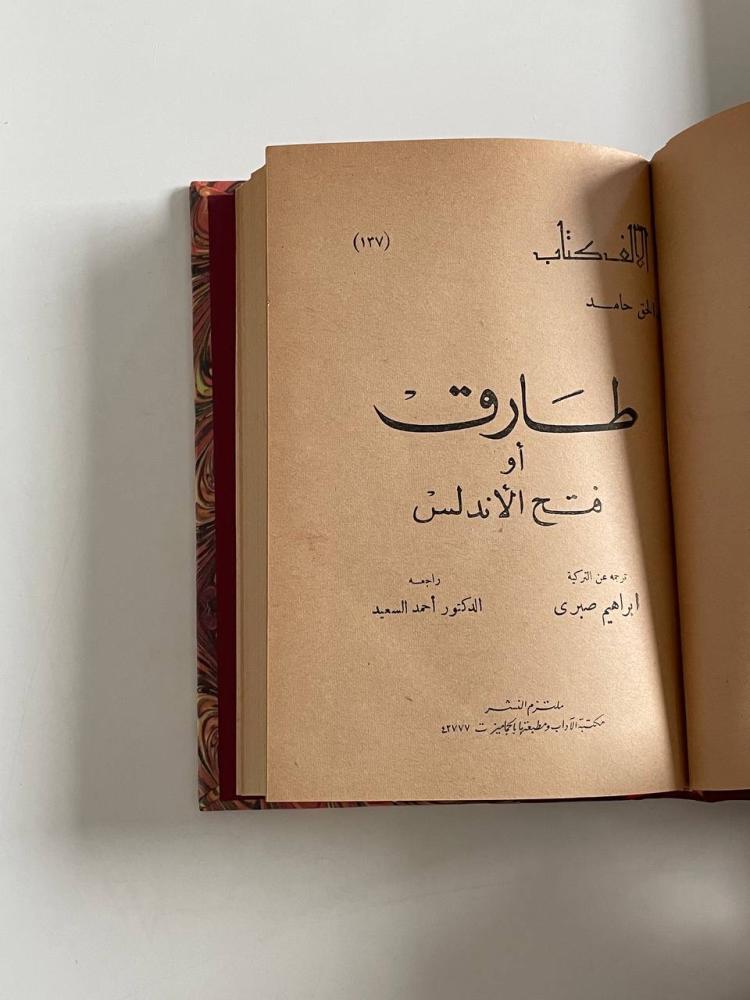 الألف كتاب (١٣٧)
الحق حامد
طارق
أو
فتح الأندلس
ترجمه عن التركية
ابراهيم صبرى
راجعه
الدكتور أحمد السعيد
ملتزم النشر
مكتبة الآداب ومطبعتها بالجاميز ت ٤٢٧٧٧